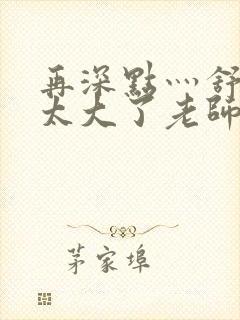 再深點灬舒
太大了老師
茅家埠